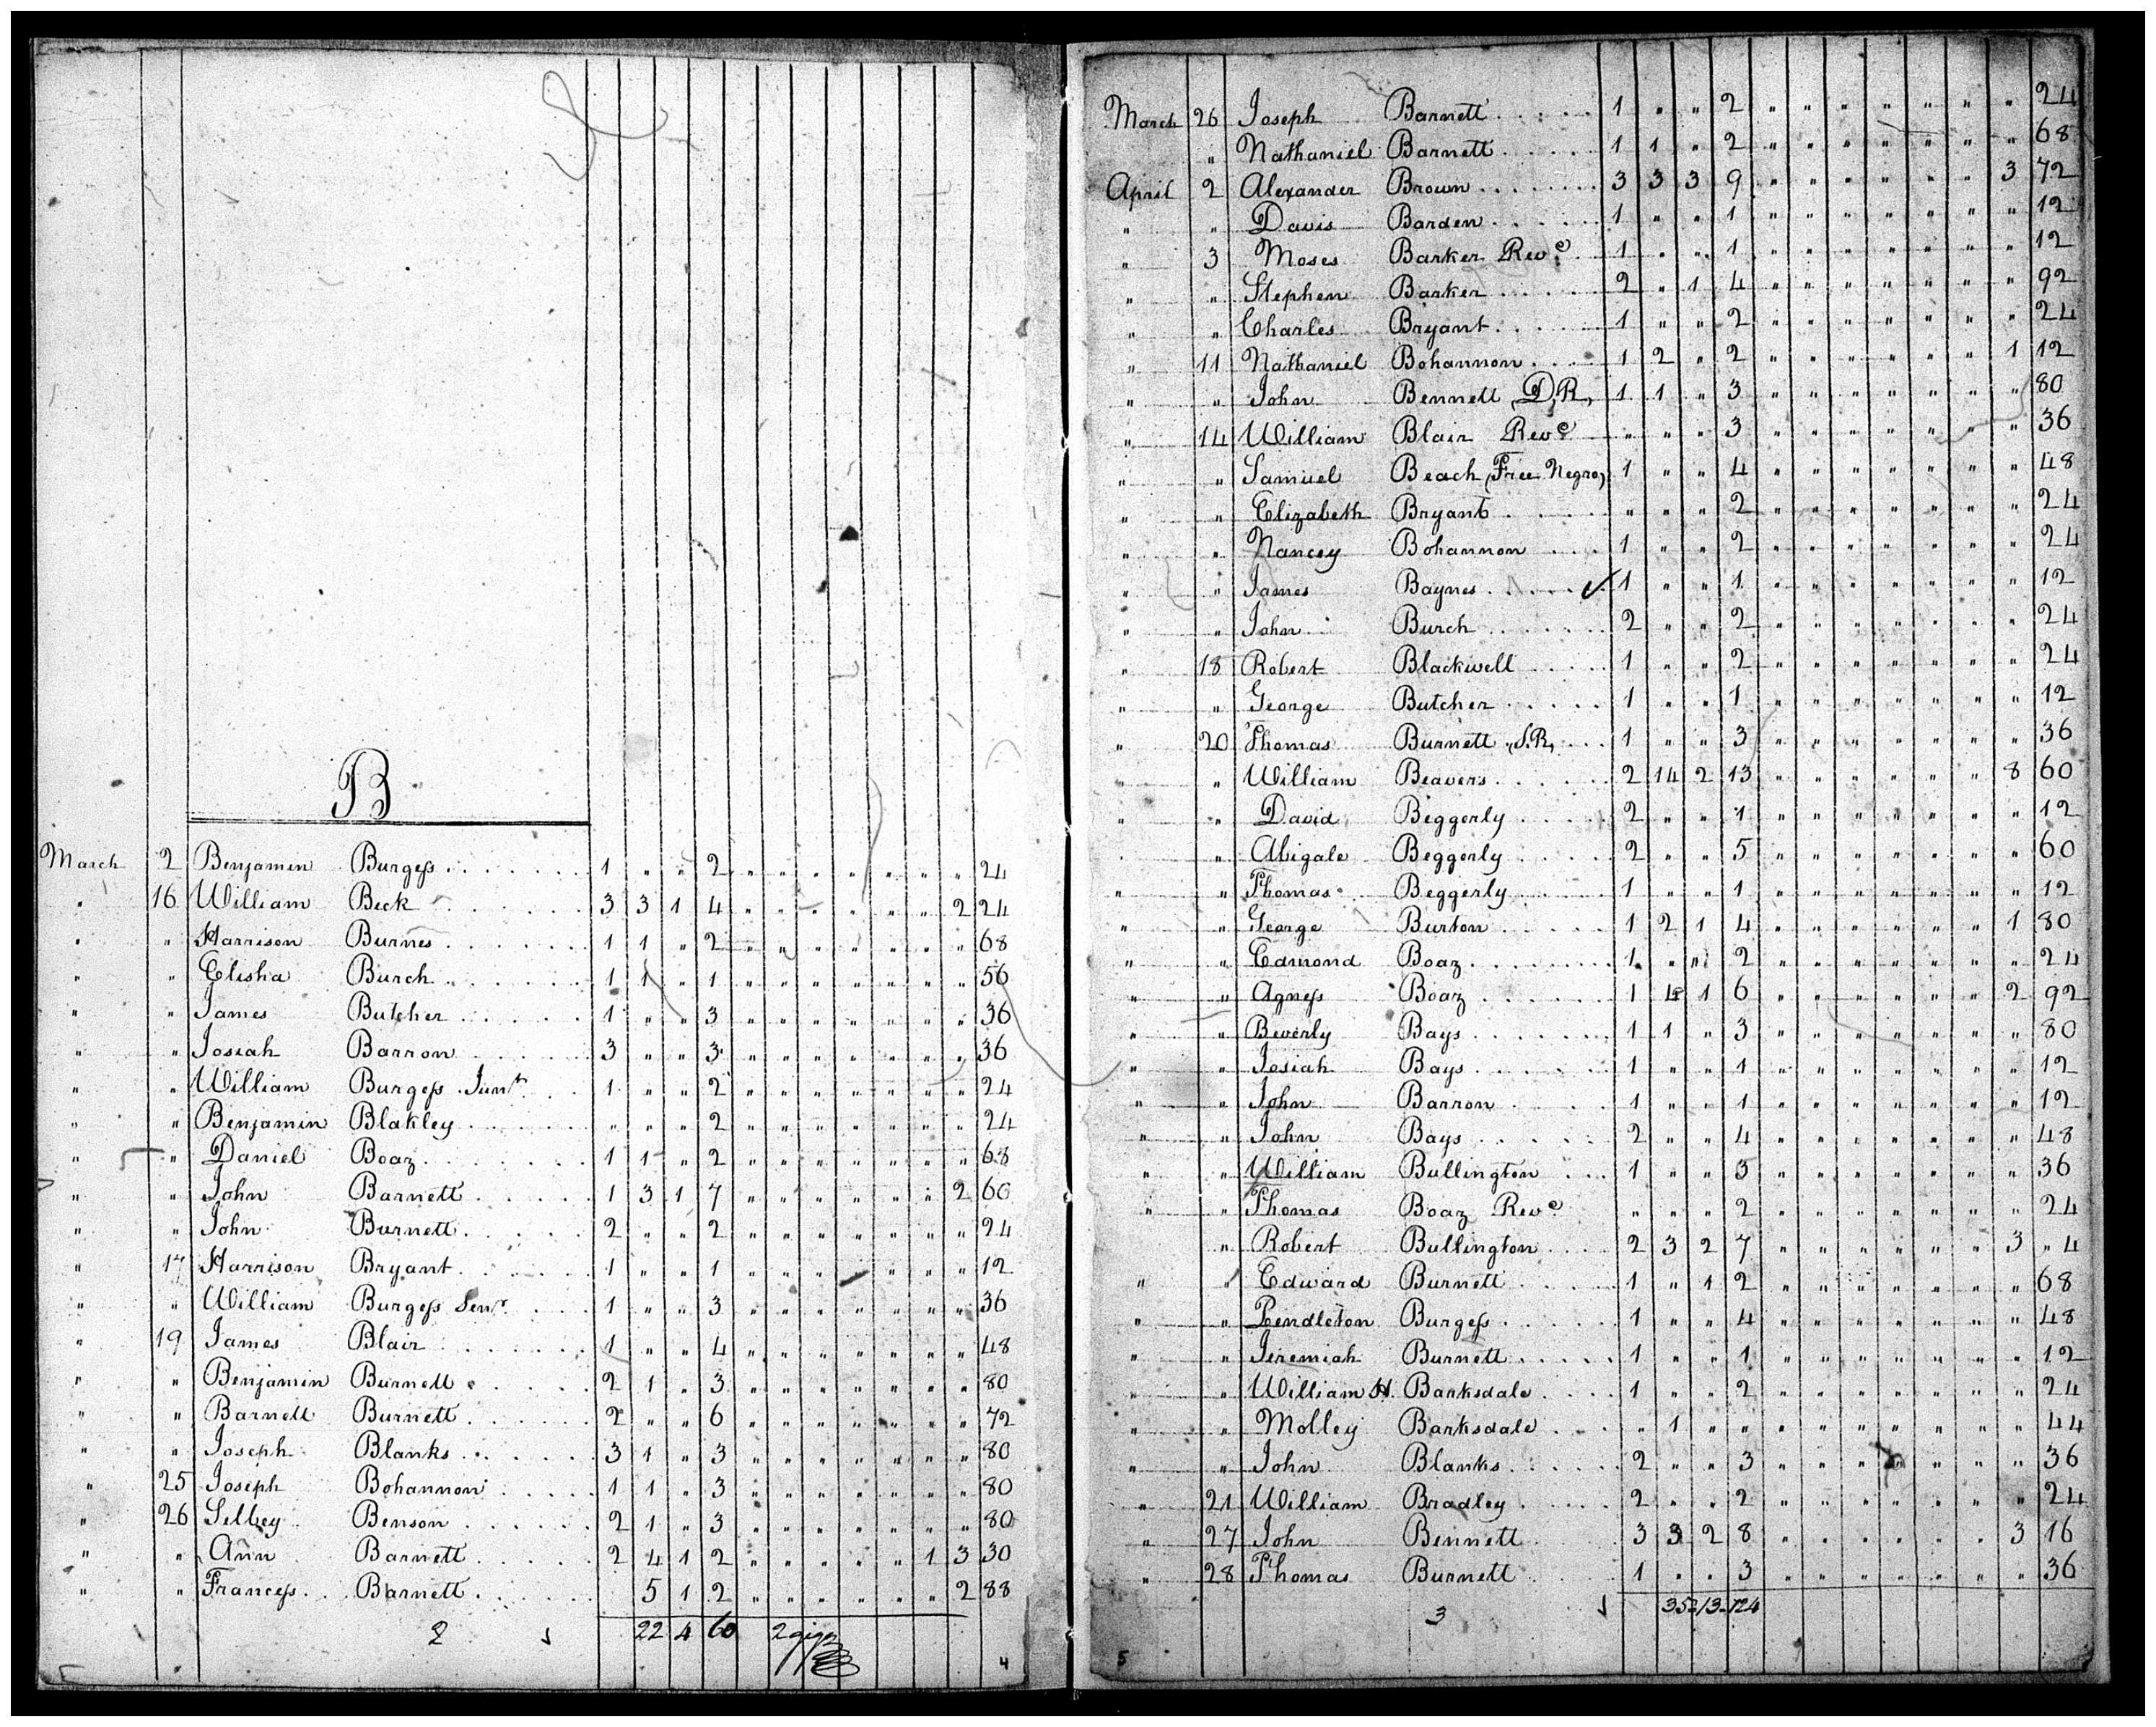 B
March 2 Benjamin Burgess . . . . . . . 1 " " 2 " " " " " " " 24
" 16 William Beck . . . . . 3 3 1 4 " " " " " " 2 24
" " Harrison Burnes . . . . . . 1 1 " 2 " " " " " " " 68
" " Elisha Burch . . . . . . 1 1 " 1 " " " " " " " 56
" " James Butcher . . . . . 1 " " 3 " " " " " " " 36
" " Josiah Barron . . . . . 3 " " 3 " " " " " " " 36
" " William Burgess Junr . . 1 " " 2 " " " " " " " 24
" " Benjamin Blakley . . . . . " " " 2 " " " " " " " 24
" " Daniel Boaz . . . . . . . 1 1 " 2 " " " " " " " 68
" " John Barnett . . . . . 1 3 1 7 " " " " " " 2 60
" " John Burnett . . . . . 2 " " 2 " " " " " " " 24
" 17 Harrison Bryant . . . . . . 1 " " 1 " " " " " " " 12
" " William Burgess Senr . . . 1 " " 3 " " " " " " " 36
" 19 James Blair . . . . . . . 1 " " 4 " " " " " " " 48
" " Benjamin Burnett . . . . . 2 1 " 3 " " " " " " " 80
" " Barnett Burnett . . . . . . 2 " " 6 " " " " " " " 72
" " Joseph Blanks . . . . . . 3 1 " 3 " " " " " " " 80
" 25 Joseph Bohannon . . . . . 1 1 " 3 " " " " " " " 80
" 26 Silbey Benson . . . . . . 2 1 " 3 " " " " " " " 80
" " Ann Barnett . . . . . . 2 4 1 2 " " " " " 1 3 30
" " Francess . . Barnett . . . . . . 5 1 2 " " " " " " 2 88
2 22 4 60 2 gigs
4
March 26 Joseph Barnett . . . . . 1 " " 2 " " " " " " " 24
" Nathaniel Barnett . . . . . 1 1 " 2 " " " " " " " 68
April 2 Alexander Brown . . . . . . . 3 3 3 9 " " " " " " 3 72
" " Davis Barden . . . . . 1 " " 1 " " " " " " " 12
" 3 Moses Barker Revd . 1 " " 1 " " " " " " " 12
" " Stephen Barker . . . . . 2 " 1 4 " " " " " " " 92
" " Charles Bryant . . . . . 1 " " 2 " " " " " " " 24
" 11 Nathaniel Bohannon . . . . 1 2 " 2 " " " " " " 1 12
" " John Bennett (D.R) 1 1 " 3 " " " " " " " 80
" 14 William Blair Revd " " " 3 " " " " " " " 36
" " Samuel Beach (Free Negro) 1 " " 4 " " " " " " " 48
" " Elizabeth Bryant . . . . . " " " 2 " " " " " " " 24
" " Nancey Bohannon . . . . 1 " " 2 " " " " " " " 24
" " James Baynes . . . . . ✓ 1 " " 1 " " " " " " " 12
" " John Burch . . . . . . 2 " " 2 " " " " " " " 24
" 18 Robert Blackwell . . . . . 1 " " 2 " " " " " " " 24
" " George Butcher . . . . . 1 " " 1 " " " " " " " 12
" 20 Thomas Burnett (S.R) . . . 1 " " 3 " " " " " " " 36
" " William Beavers . . . . . 2 14 2 13 " " " " " " 8 60
" " David Beggerly . . . . . 2 " " 1 " " " " " " " 12
" " Abigale Beggerly . . . . 2 " " 5 " " " " " " " 60
" " Thomas Beggerly . . . . 1 " " 1 " " " " " " " 12
" " George Burton . . . . . 1 2 1 4 " " " " " " 1 80
" " Edmond Boaz . . . . . . . 1 " " 2 " " " " " " " 24
" " Agness Boaz . . . . . . 1 4 1 6 " " " " " " 2 92
" " Beverly Bays . . . . . . 1 1 " 3 " " " " " " " 80
" " Josiah Bays . . . . . . 1 " " 1 " " " " " " " 12
" " John Barron . . . . 1 " " 1 " " " " " " " 12
" " John Bays . . . . . . 2 " " 4 " " " " " " " 48
" " William Bullington . . . 1 " " 3 " " " " " " " 36
" " Thomas Boaz Revd " " " 2 " " " " " " " 24
" Robert Bullington . . . . 2 3 2 7 " " " " " " 3 " 4
" " Edward Burnett . . . . . 1 " 1 2 " " " " " " " 68
" " Pendleton Burgess . . . . . . 1 " " 4 " " " " " " " 48
" " Jeremiah Burnett . . . . . 1 " " 1 " " " " " " " 12
" " William H. Barksdale . . . . 1 " " 2 " " " " " " " 24
" " Molley Barksdale . . . . " 1 " " " " " " " " " 44
" " John Blanks . . . . . . 2 " " 3 " " " " " " " 36
" 21 William Bradley . . . . . 2 " " 2 " " " " " " " 24
" 27 John Bennett . . . . . 3 3 2 8 " " " " " " 3 16
" 28 Thomas Burnett . . . . . 1 " " 3 " " " " " " " 36
3 35 13 124
5